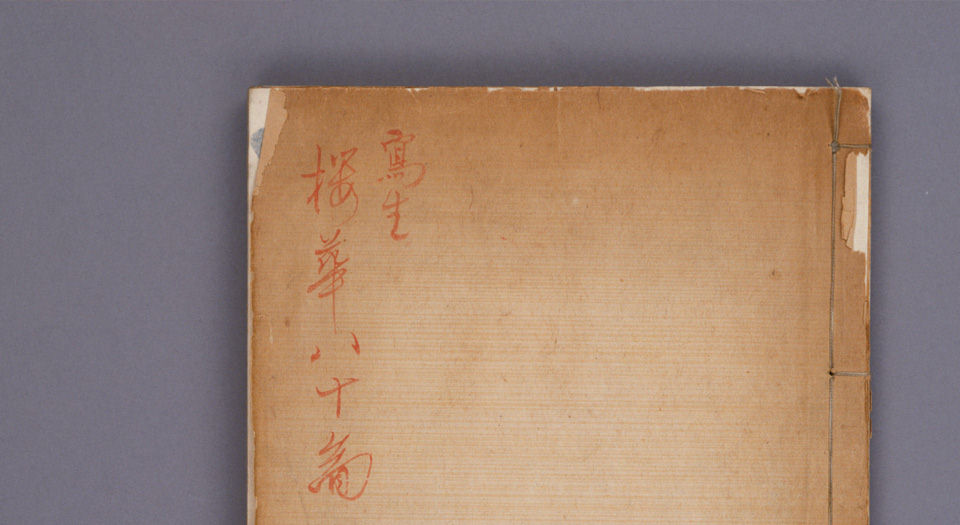 寫生
櫻華八十